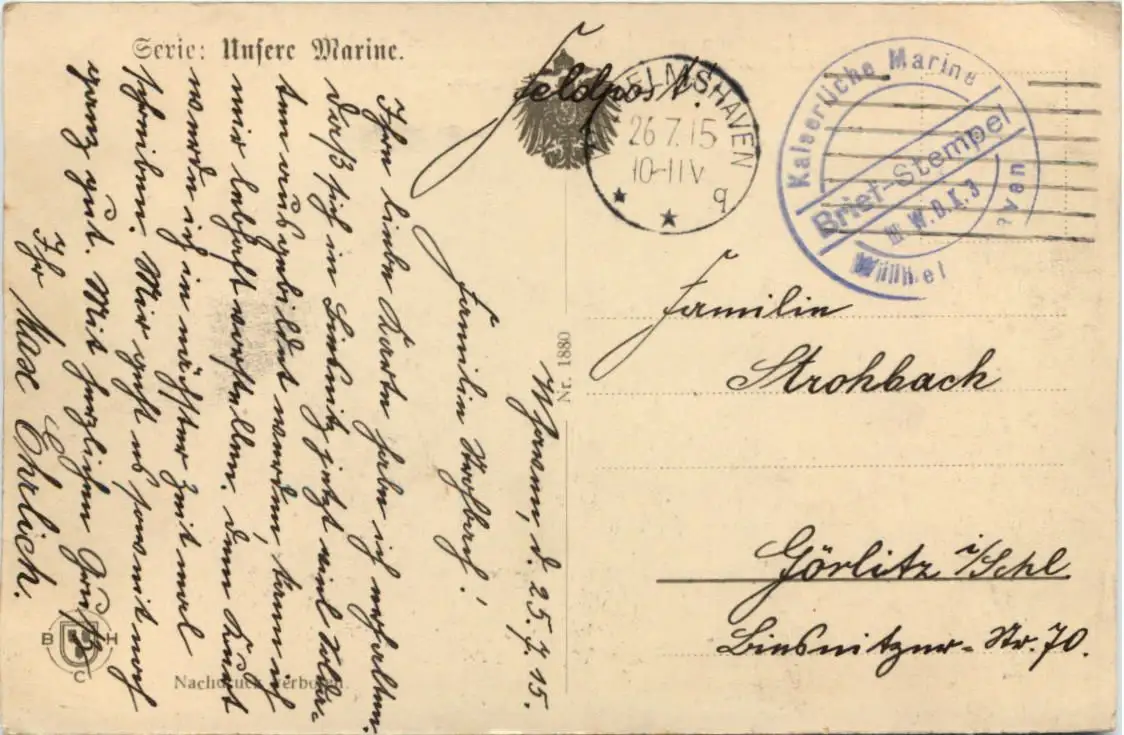 Serie: Unsere Marine.
Feldpost.
WILHELMSHAVEN
26 7.15
10-11V
* * q
Kaiserliche Marine
Brief-Stempel
III W.D.I.3
Wilhel aven
W'haven, d. 25.7.15.
Familie Strohbach!
Ihre liebe Karte habe ich erhalten.
Daß sich in Liebnitz jetzt viel Solda-
ten ausgebildet werden, kann ich
mir lebhaft vorstellen. denn
werden ich in nächster Zeit mal
schreiben. Mir geht es soweit noch
ganz gut. Mit herzlichem Gruß
Ihr Max Ehrlich.
Familie
Strohbach
Görlitz i/Schl.
Biesnitzer-Str. 70.
Nr. 1880
B H
C
Nachdruck verboten.